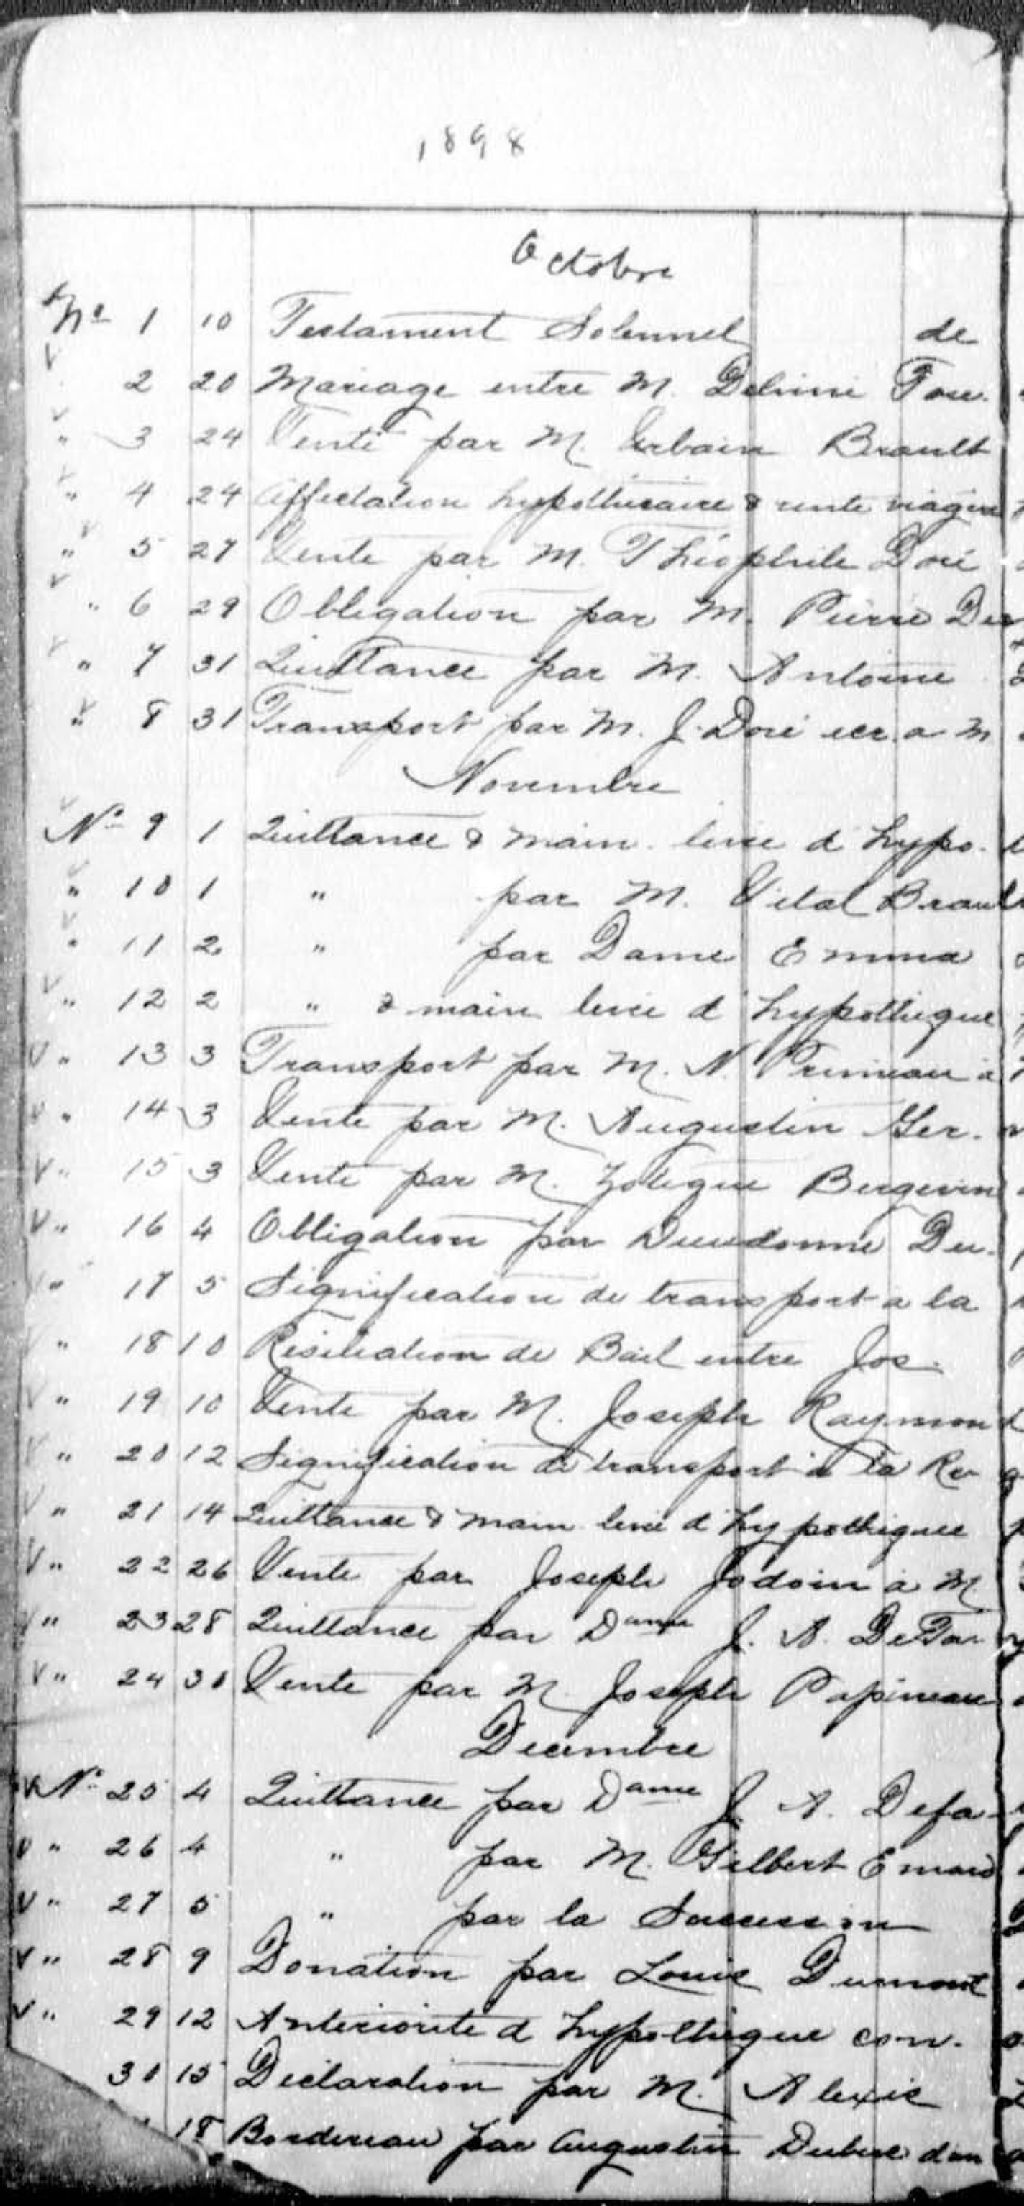 1898
Octobre
No 1 10 Testament Solennel de
2 20 Mariage entre M. Fau.
" 3 24 Vente par M. Urbain Brault
" 4 24 Affectation hypothécaire & rente viagère
" 5 27 Vente par M. Théophile Doré
" 6 29 Obligation par M. Pierre Der
" 7 31 Quittance par M. Antoine
" 8 31 Transport par M. J. Doré ecr. a M
Novembre
No 9 1 Quittance & main levée d'hypo.
" 10 1 " par M. Vital Brault
" 11 2 " par Dame Emma
" 12 2 " & main levée d'hypothèque
" 13 3 Transport par M. N. Primeau à
" 14 3 Vente par M. Augustin Ger.
" 15 3 Vente par M. Zotique Bergevin
" 16 4 Obligation par Dieudonné Du.
" 17 5 Signification de transport a la
" 18 10 Résiliation de Bail entre Jos.
" 19 10 Vente par M. Joseph Raymond
" 20 12 Signification de transport à la Re
" 21 14 Quittance & main levée d'hypothèque
" 22 26 Vente par Joseph Jodoin à M
" 23 28 Quittance par Dame J. A. DeFar
" 24 30 Vente par M Joseph Papineau
Decembre
No 25 4 Quittance par Dame J. A. Defa
" 26 4 " par M. Gilbert Emard
" 27 5 " par la Succession
" 28 9 Donation par Louis Dumont
" 29 12 Antériorité d'hypothèque con.
30 15 Déclaration par M. Alexis
18 Bordereau par Augustin